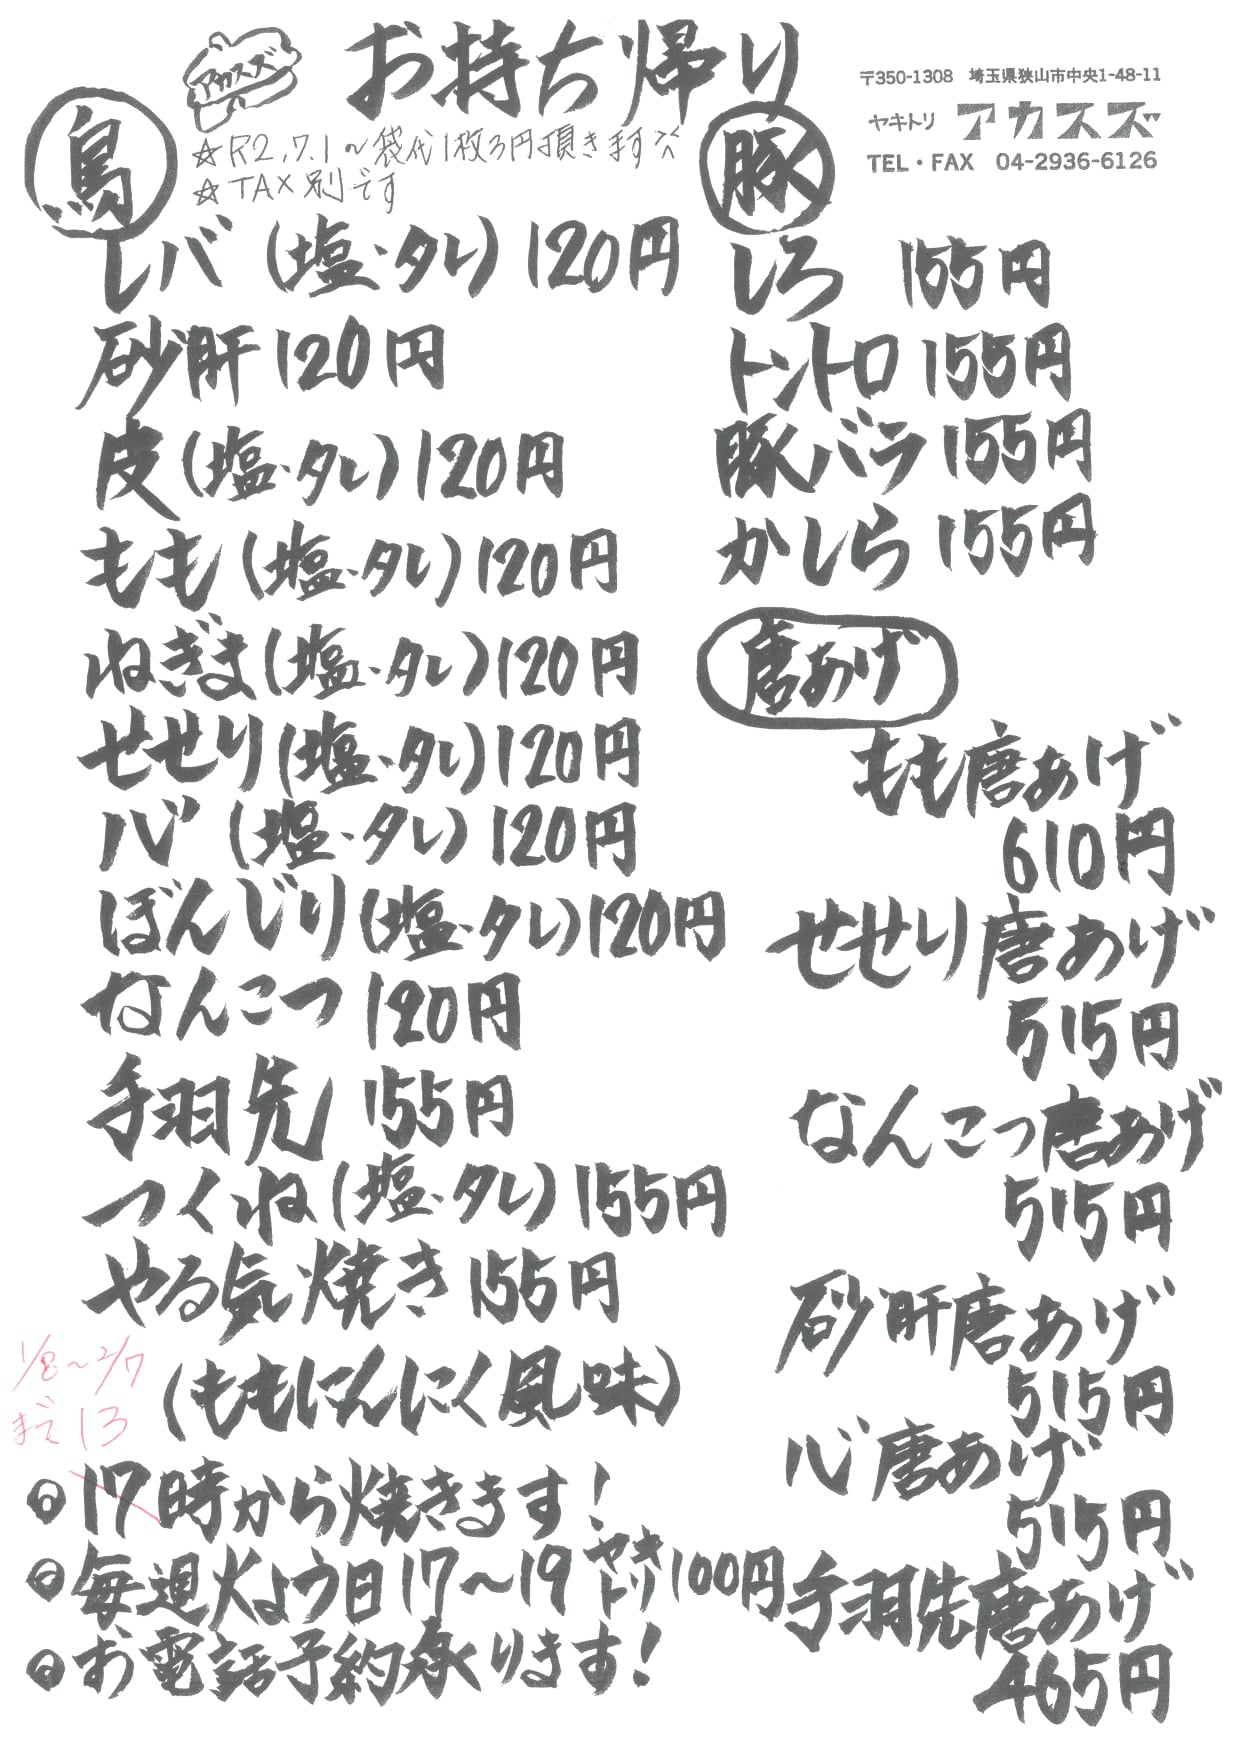 アカスズ
お持ち帰り
〒350-1308 埼玉県狭山市中央1-48-11
ヤキトリ アカスズ
TEL・FAX 04-2936-6126
☆R2.7.1〜袋代1枚3円頂きます
☆TAX別です
鳥
レバ(塩・タレ)120円
砂肝120円
皮(塩・タレ)120円
もも(塩・タレ)120円
ねぎま(塩・タレ)120円
せせり(塩・タレ)120円
ハツ(塩・タレ)120円
ぼんじり(塩・タレ)120円
なんこつ120円
手羽先 155円
つくね(塩・タレ)155円
やる気焼き155円
(ももにんにく風味)
1/8〜2/7
まで13
◎17時から焼きます!
◎毎週火よう日17〜19ヤキトリ100円
◎お電話予約承ります!
豚
しろ 155円
トントロ155円
豚バラ155円
かしら155円
唐あげ
もも唐あげ
610円
せせり唐あげ
515円
なんこつ唐あげ
515円
砂肝唐あげ
515円
唐あげ
515円
手羽先唐あげ
465円